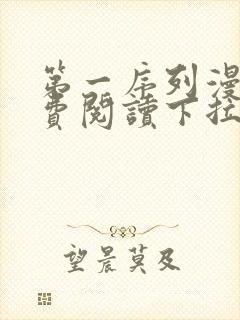 第一序列漫
費閱讀下拉
望晨莫及